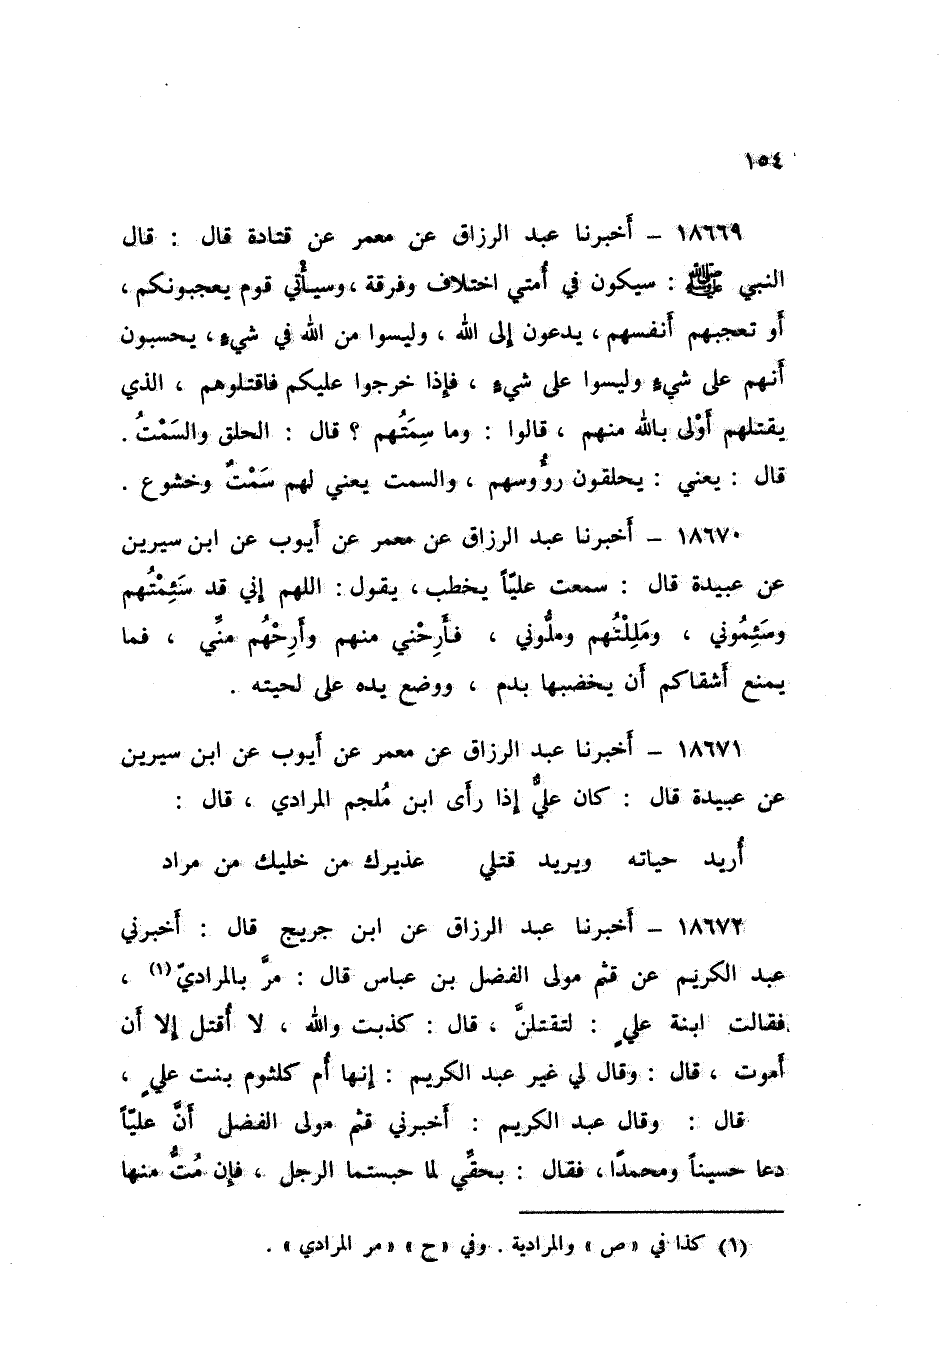 ١٥٤
١٨٦٦٩ ـ أَخبرنا عبد الرزاق عن معمر عن قتادة قال : قال
النبي ﷺ : سيكون في أُمتي اختلاف وفرقة ، وسيأْتي قوم يعجبونكم ،
أَو تعجبهم أَنفسهم ، يدعون إلى الله ، وليسوا من الله في شيءٍ ، يحسبون
أَنهم على شيءٍ وليسوا على شيءٍ ، فإِذا خرجوا عليكم فاقتلوهم ، الذي
يقتلهم أَوْلى بالله منهم ، قالوا : وما سِمَتُهم ؟ قال : الحلق والسَمْتُ .
قال : يعني : يحلقون رؤُوسهم ، والسمت يعني لهم سَمْتٌ وخشوع .
١٨٦٧٠ ـ أَخبرنا عبد الرزاق عن معمر عن أَيوب عن ابن سيرين
عن عبيدة قال : سمعت عليّاً يخطب ، يقول : اللهم إِني قد سَئِمْتُهم
وسَئِمُوني ، ومَلِلْتُهم وملُّوني ، فأَرِحْني منهم وأَرِحْهُم منِّي ، فما
يمنع أَشقاكم أَن يخضبها بدم ، ووضع يده على لحيته .
١٨٦٧١ ـ أَخبرنا عبد الرزاق عن معمر عن أَيوب عن ابن سيرين
عن عبيدة قال : كان عليٌّ إِذا رأَى ابن مُلجم المرادي ، قال :
أُريد حياته ويريد قتلي عذيرك من خليك من مراد
١٨٦٧٢ ـ أَخبرنا عبد الرزاق عن ابن جريج قال : أَخبرني
عبد الكريم عن قثم مولى الفضل بن عباس قال : مرَّ بالمراديّ (١) ،
فقالت ابنة عليٍ : لتقتلنَّ ، قال : كذبت والله ، لا أُقتل إلا أَن
أَموت ، قال : وقال لي غير عبد الكريم : إِنها أُم كلثوم بنت عليٍ ،
قال : وقال عبد الكريم : أَخبرني قثم مولى الفضل أَنَّ عليّاً
دعا حسيناً ومحمدًا ، فقال : بحقِّي لما حبستما الرجل ، فإِن مُتُّ منها
(١) كذا في « ص » والمرادية . وفي « ح » « مر المرادي » .